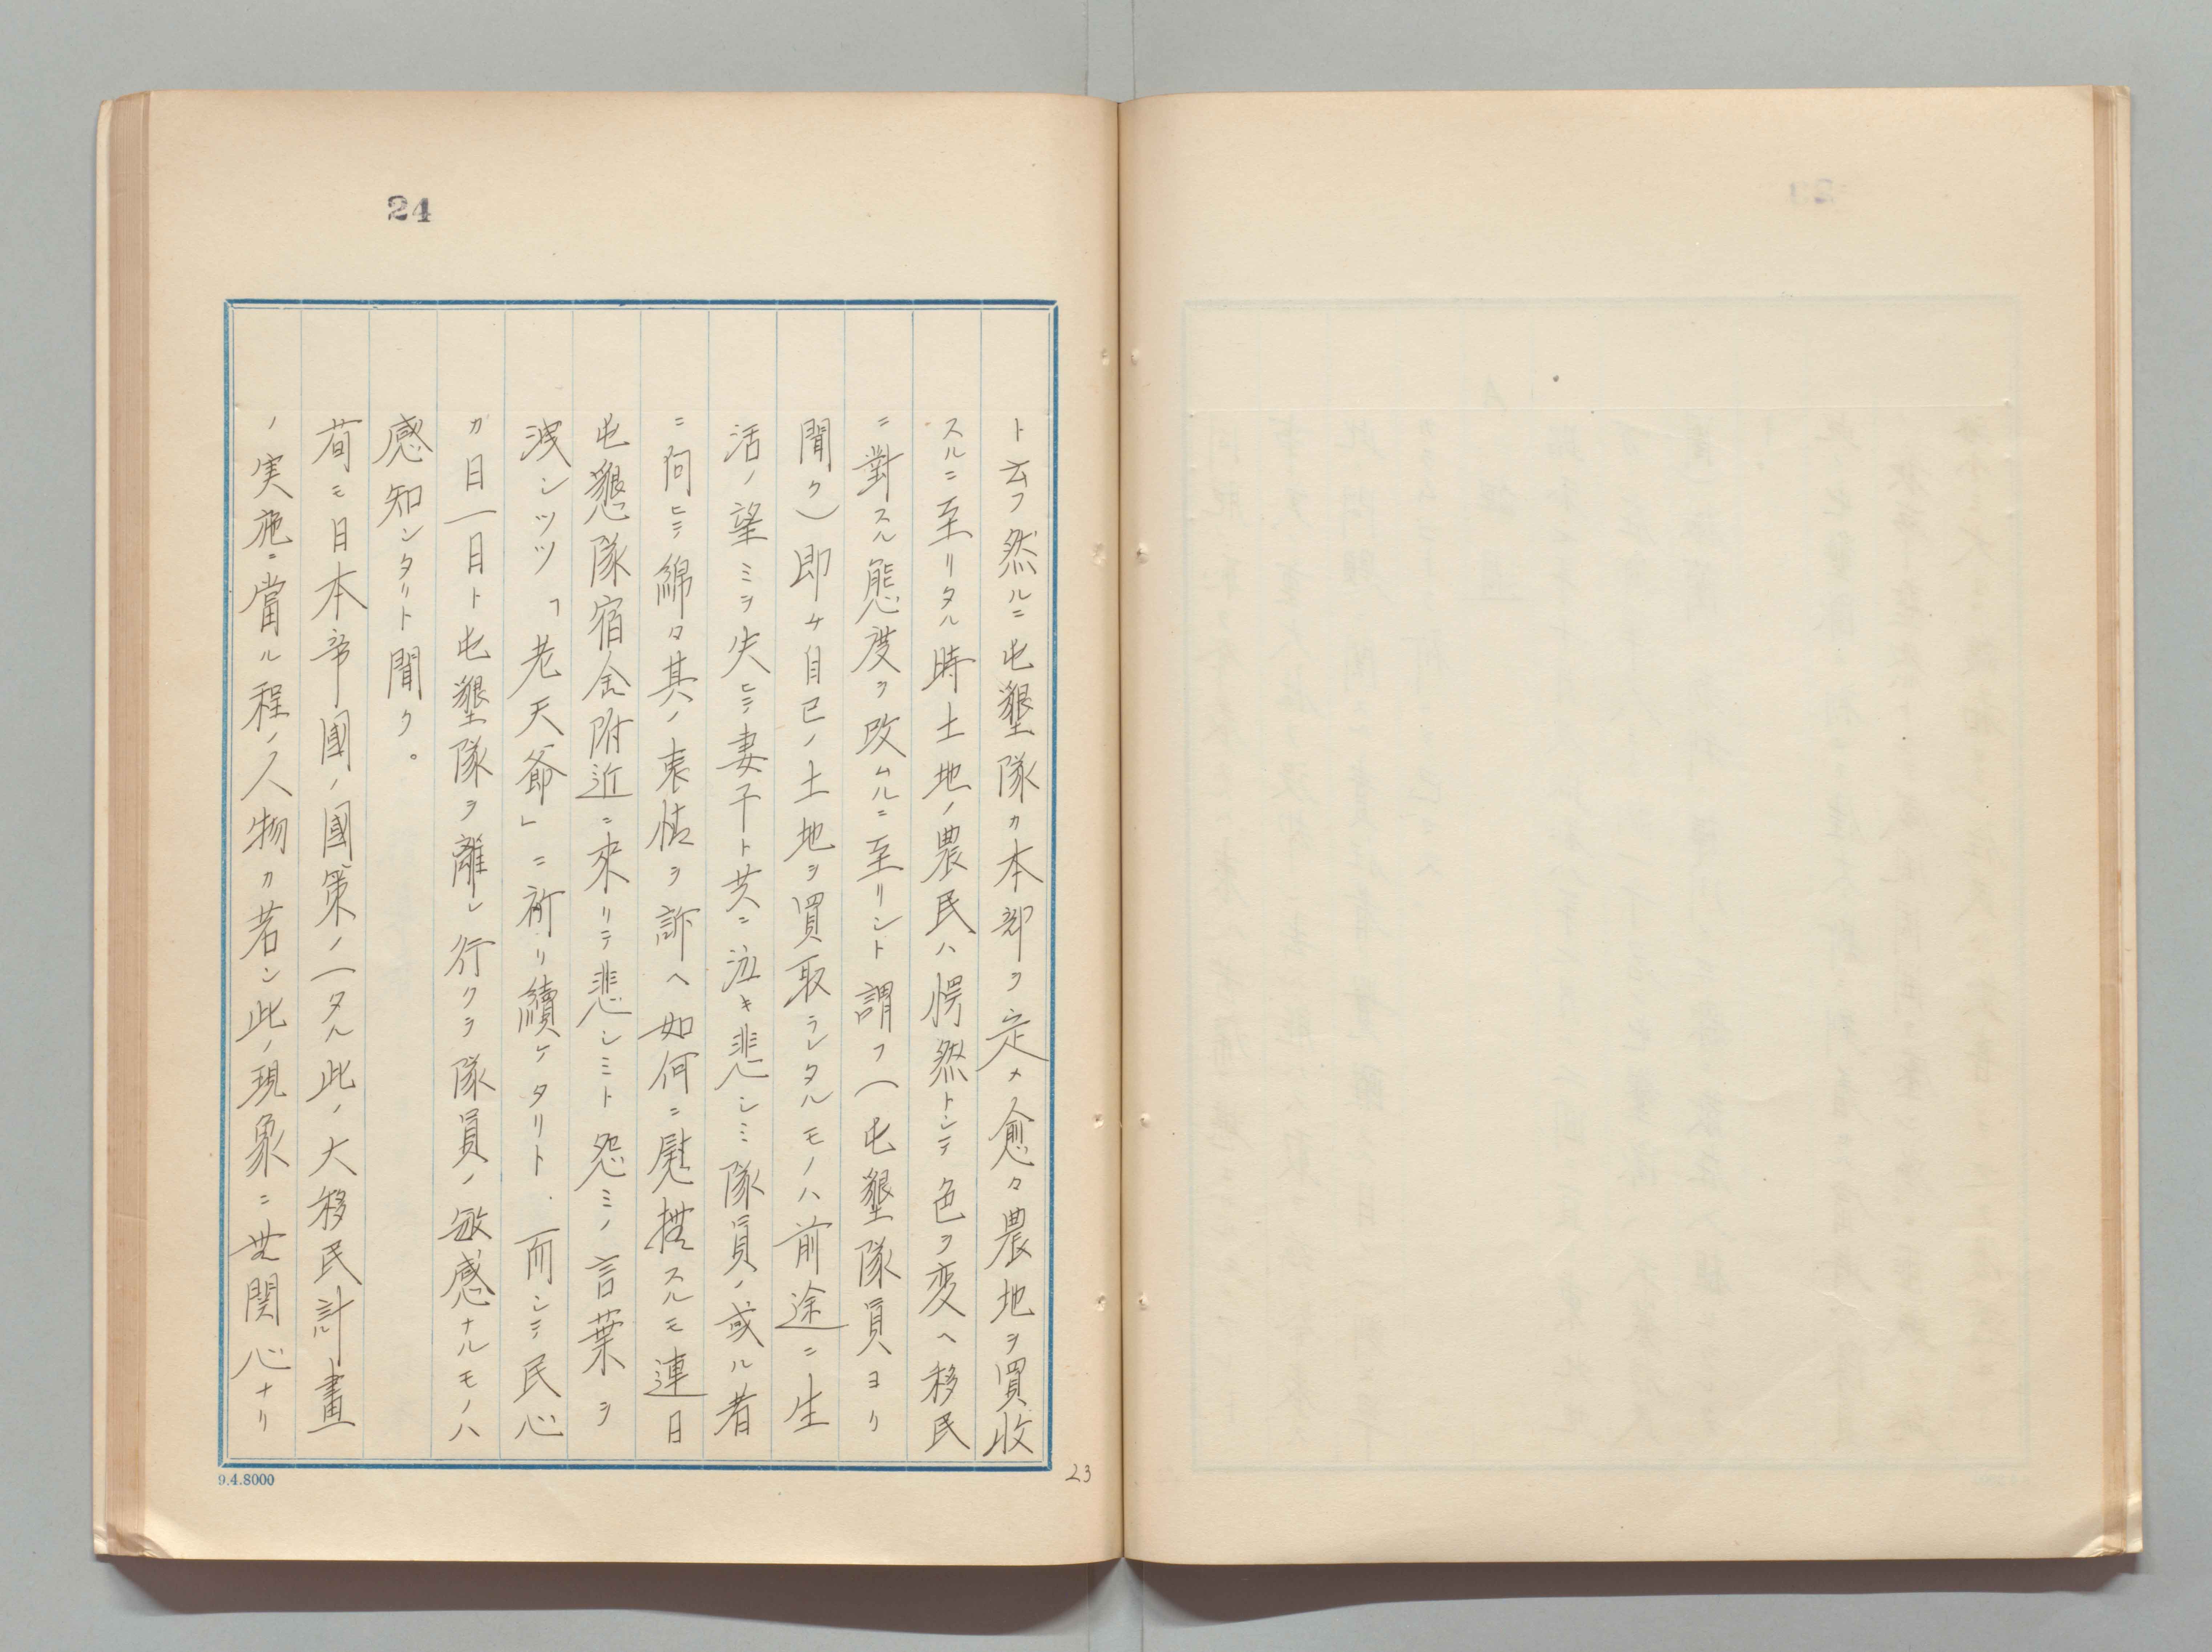 24
ト云フ然ルニ屯墾隊カ本部ヲ定メ愈々農地ヲ買收
スルニ至リタル時土地ノ農民ハ愕然トシテ色ヲ変ヘ移民
ニ對スル態度ヲ改ムルニ至リシト謂フ(屯墾隊員ヨリ
聞ク)即ケ自己ノ土地ヲ買取ラレタルモノハ前途ニ生
活ノ望ミヲ失ヒテ妻子ト共ニ泣キ悲シミ隊員ノ或ル者
ニ向ヒテ綿々其ノ衷情ヲ訴ヘ如何ニ慰撫スルモ連日
屯懇隊宿舎附近ニ來リテ悲シミト怨ミノ言葉ヲ
洩シツツ「老天爺」ニ祈リ續ケタリト.而シテ民心
カ日一日ト屯墾隊ヲ離レ行クヲ隊員ノ敏感ナルモノハ
感知シタリト聞ク。
荀モ日本帝國ノ國策ノ一タル此ノ大移民計畫
ノ実施ニ當ル程ノ人物カ若シ此ノ現象ニ無関心ナリ
23
9.4.8000